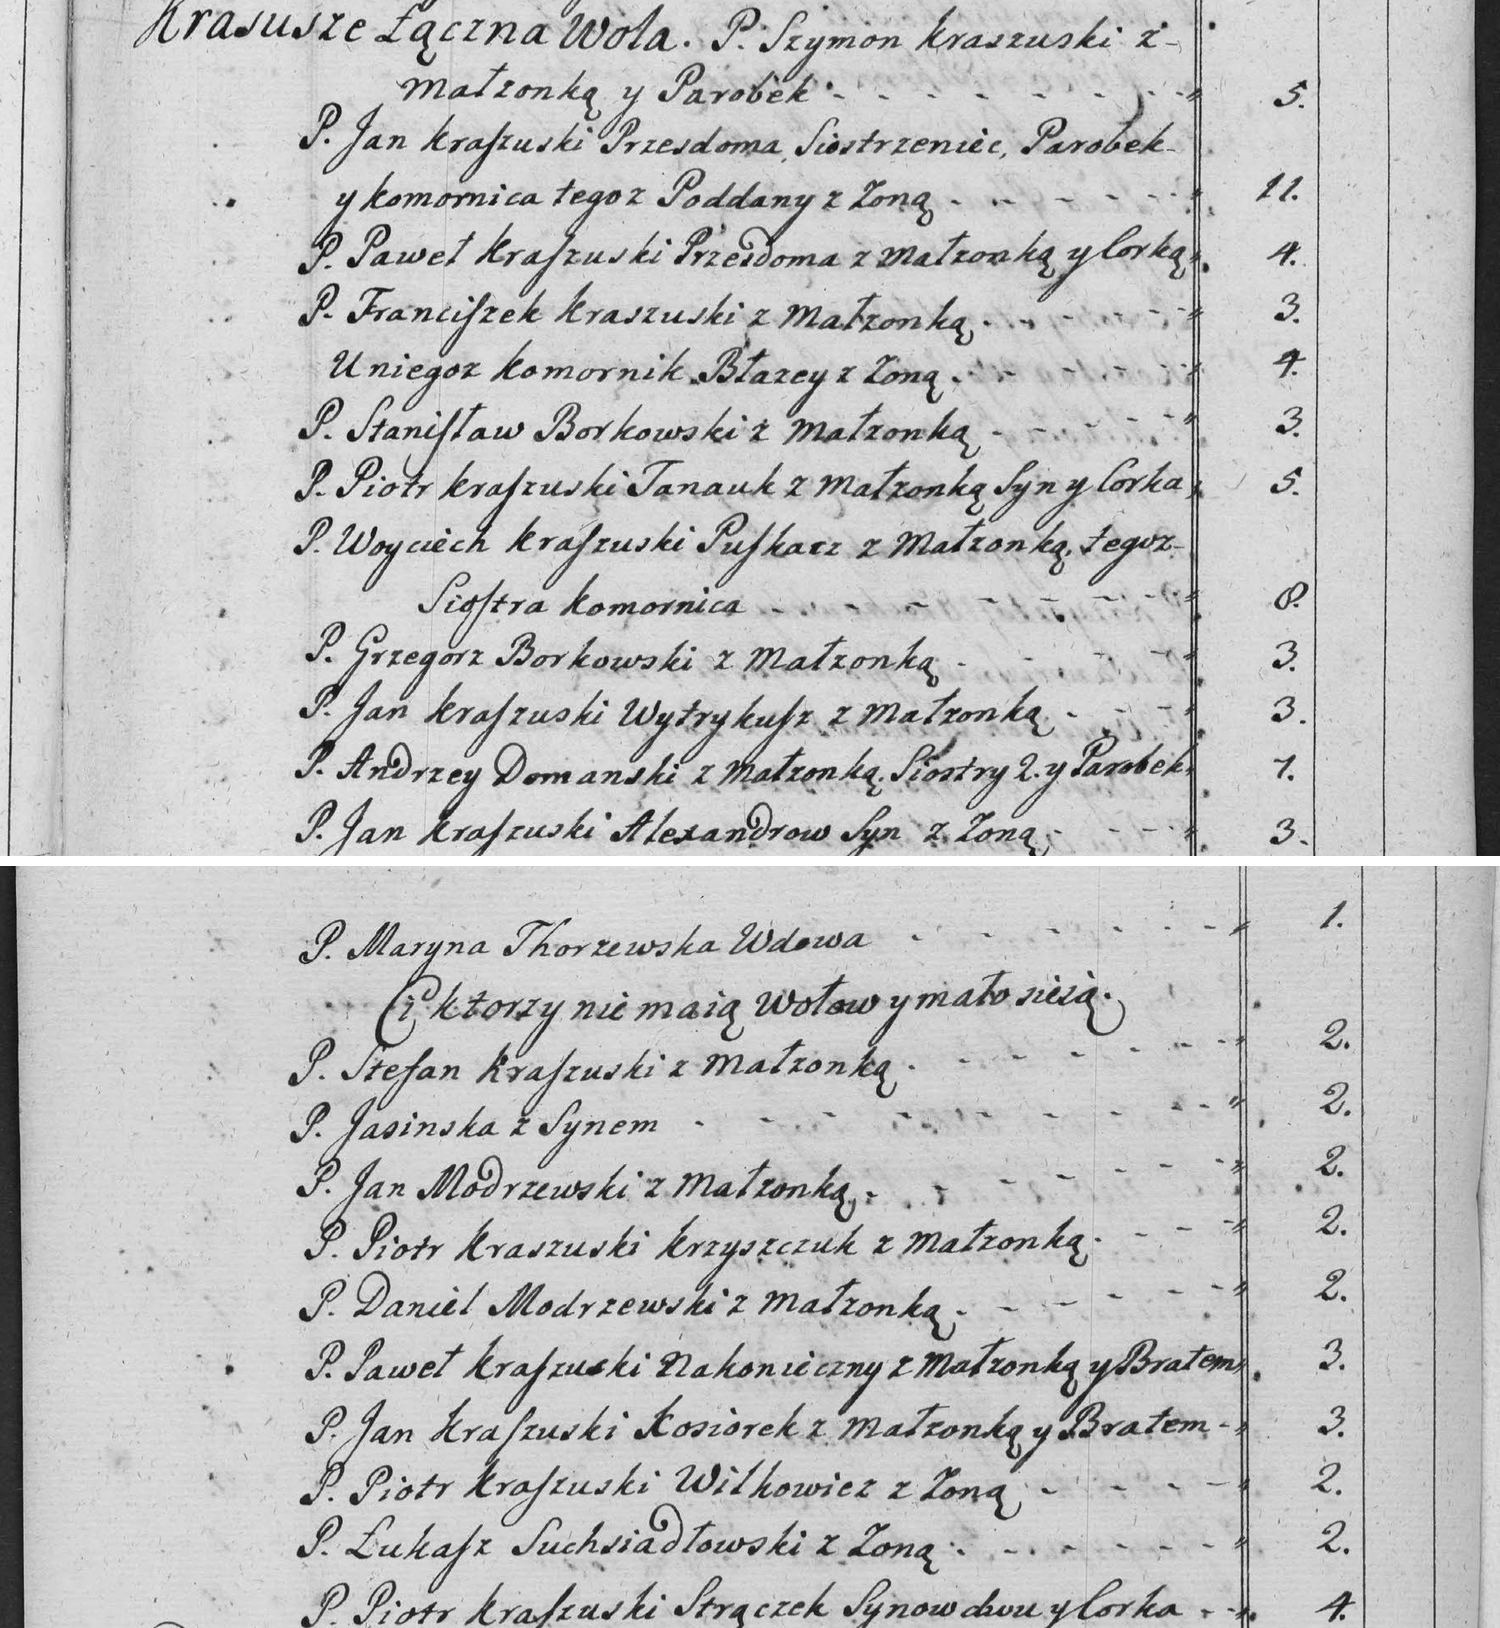 Krasusze Łączna Wola. P. Szymon Kraszuski z
Małzonką y Parobek 5.
P. Jan Kraſzuski Przesdoma, Siostrzeniec, Parobek
y Komornica tegoz Poddany z Zoną 11.
P. Paweł Kraſzuski Przesdoma z Małzonką y Corką 4.
P. Franciſzek Kraszuski z Małzonką 3.
U niegoz Komornik Błazey z Zoną 4.
P. Staniſław Borkowski z Małzonką 3.
P. Piotr Kraſzuski Tanauk z Małzonką Syn y Corka 5.
P. Woyciech Kraſzuski Puſkarz z Małzonką, tegoz
Sioſtra Komornica 8.
P. Grzegorz Borkowski z Małzonką 3.
P. Jan Kraſzuski Wytrykuſz z Małzonką 3.
P. Andrzey Domanski z Małzonką. Siostry 2. y Parobek 7.
P. Jan Kraſzuski Alexandrow Syn z Zoną 3.
P. Maryna Thorzewska Wdowa 1.
Ci ktorzy nie maią Wołow y mało sieią.
P. Stefan Kraſzuski z Małzonką 2.
P. Jasinska z Synem 2.
P. Jan Modrzewski z Małzonką 2.
P. Piotr Kraszuski Krzyszczuk z Małzonką 2.
P. Daniel Modrzewski z Małzonką 2.
P. Paweł Kraſzuski Nakonieczny z Małzonką y Bratem 3.
P. Jan Kraſzuski Kosiorek z Małzonką y Bratem 3.
P. Piotr Kraſzuski Wilkowicz z Zoną 2.
P. Łukaſz Suchsiadłowski z Zoną 2.
P. Piotr Kraſzuski Strączek Synow dwu y Corka 4.